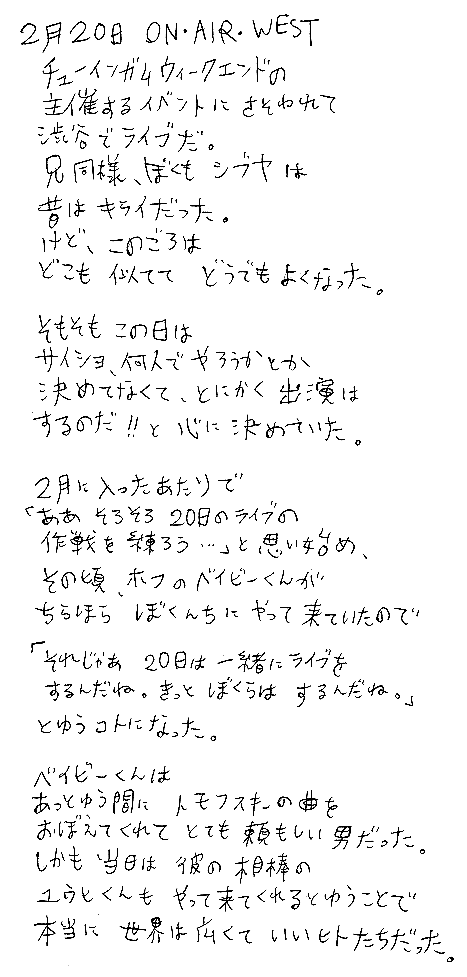 2月20日 ON・AIR・WEST
チューインガムウィークエンドの
主催するイベントに さそわれて
渋谷でライブだ。
兄同様、ぼくも シブヤは
昔は キライだった。
けど、このごろは
どこも 似てて どうでもよくなった。
そもそも この日は
サイショ、何人で やろうかとか
決めてなくて、とにかく 出演は
するのだ!! と 心に 決めていた。
2月に入ったあたりで
「ああ そろそろ 20日のライブの
作戦を 練ろう…」と 思い始め、
その頃、ホフのベイビーくんが
ちらほら ぼくんちに やって来ていたので
「それじゃあ 20日は 一緒にライブを
するんだね。きっと ぼくらは するんだね。」
とゆうコトになった。
ベイビーくんは
あっとゆう間に トモフスキーの曲を
おぼえてくれて とても 頼もしい 男だった。
しかも 当日は 彼の 相棒の
ユウヒくんも やって来てくれるとゆうことで
本当に 世界は広くて いいヒトたちだった。